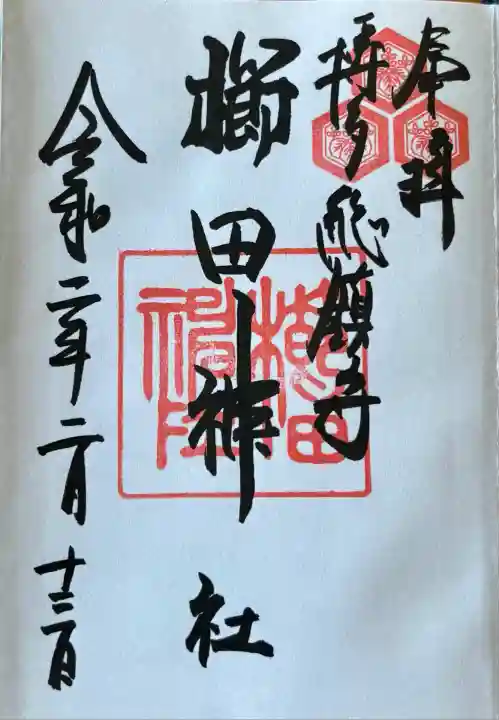 奉拝
博多総鎮守
櫛田神社
令和二年二月十三日
櫛田神社